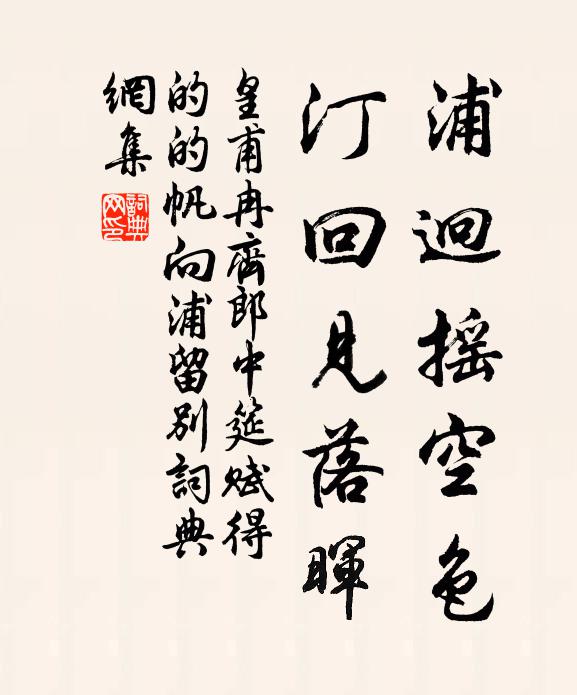 浦迥摇空色
汀回見落暉
皇甫冉齊郎中筵賦得
的的帆向浦留别詞典
網集
詞典
网印